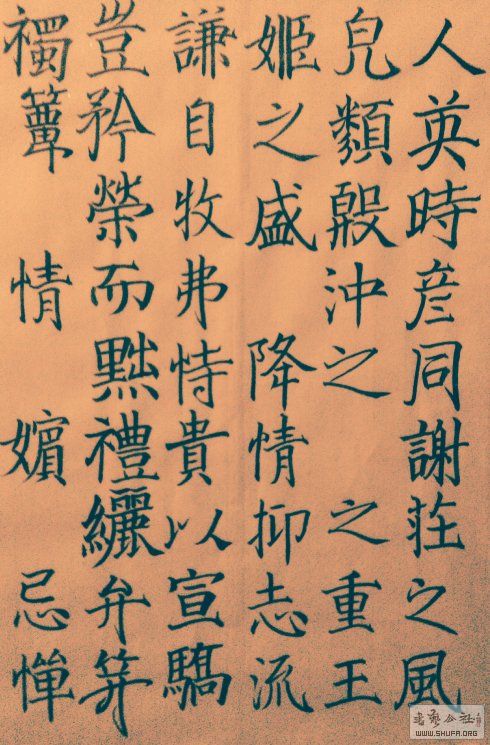 人英時彦同謝莊之風
皃類殷沖之 之重王
姬之盛 降情抑志流
謙自牧弗恃貴以宣驕
豈矜榮而黜禮纚弁笄
襡簟 情 嬪 忌憚
WWW.SHUFA.ORG